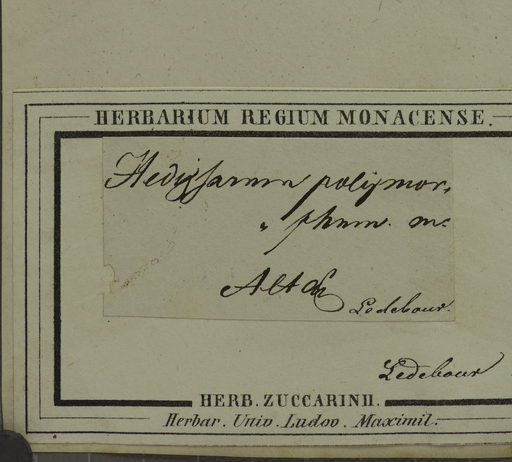 HERBARIUM REGIUM MONACENSE.
Hedysarum polymor,
„ phum. m.
Altai
Ledebour.
Ledebour
HERB. ZUCCARINII.
Herbar. Univ. Ludov. Maximil.